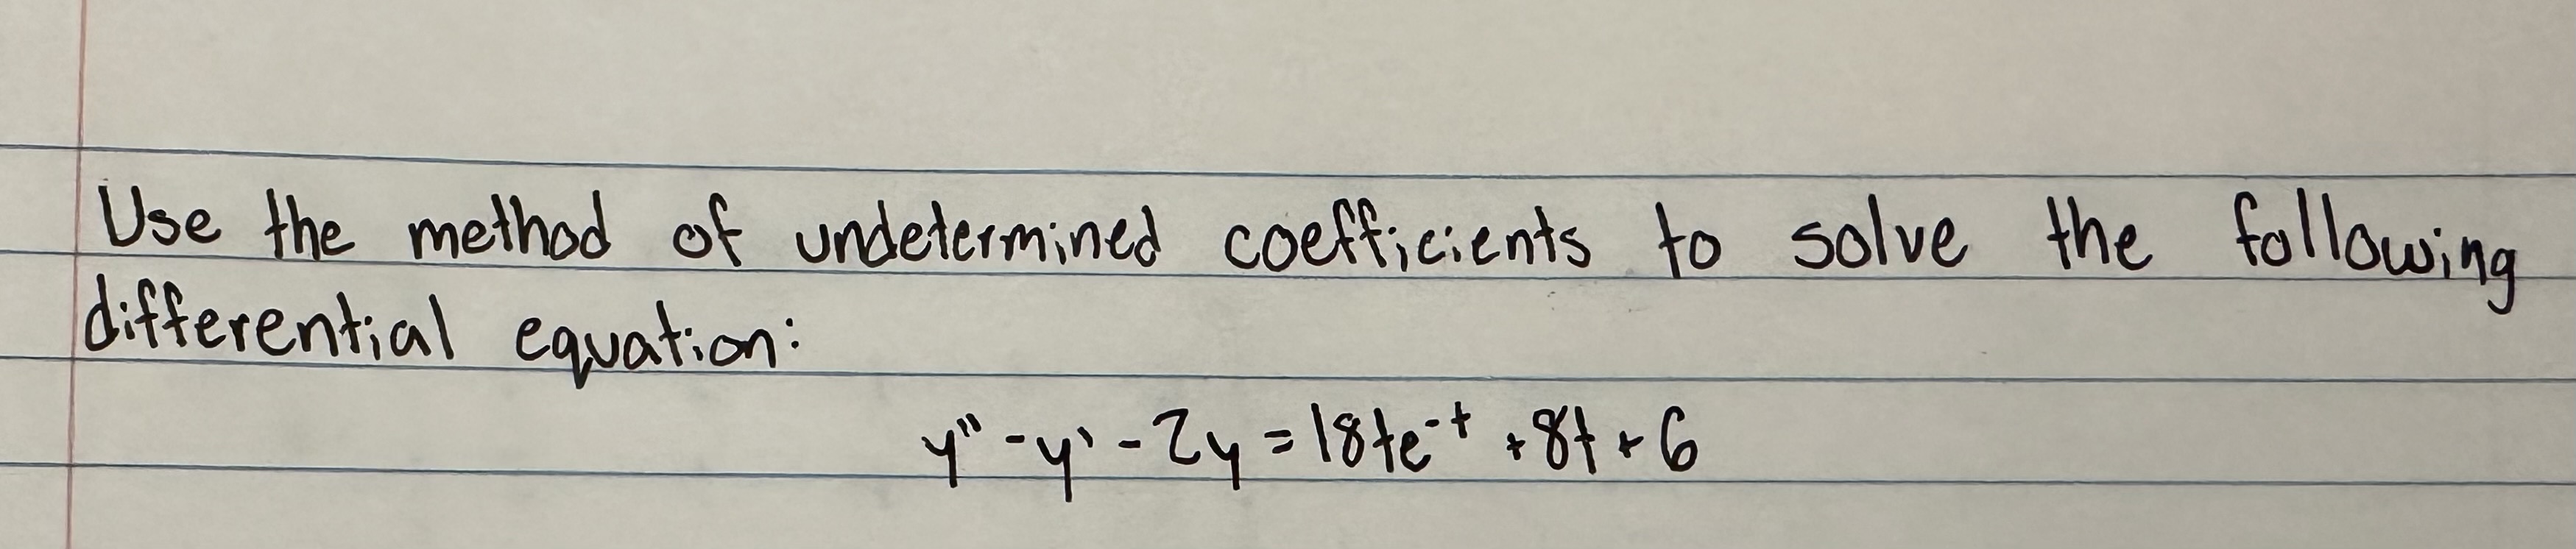 Use the method of undetermined coefficients to solve the following
differential equation:
y'' - y' - 2y = 18te^{-t} + 8t + 6